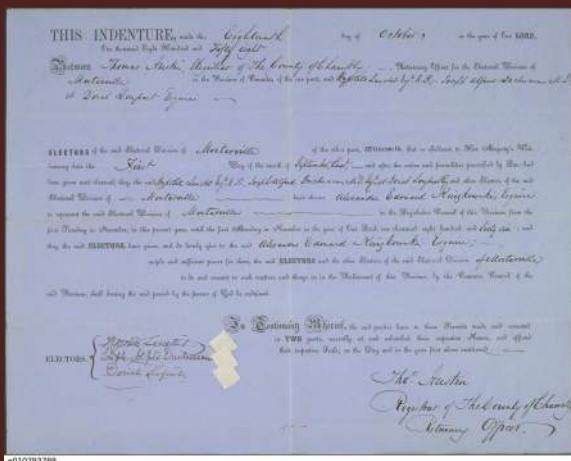 THIS INDENTURE, made the Eighteenth day of October, in the year of Our LORD,
One thousand Eight Hundred and Fifty eight
Between Thomas Austin, Registrar of The County of Chambly Returning Officer for the Electoral Division of
Montarville in the Province of Canada of the one part, and Esq. Joseph Alfred
Esquire
ELECTORS of the said Electoral Division of Montarville of the other part, Witnesseth, that in obedience to Her Majesty's Writ
bearing date the First Day of the month of September last, and after the notice and formalities prescribed by Law had
been given and observed, they the said Joseph Alfred and other Electors of the said
Electoral Division of Montarville have chosen Alexander Edouard Kierzkowski, Esquire
to represent the said Electoral Division of Montarville in the Legislative Council of this Province from the
first Tuesday in November, in this present year, until the first Monday in November in the year of Our Lord, one thousand eight hundred and sixty six and
they the said ELECTORS, have given, and do hereby give to the said Alexander Edouard Kierzkowski Esquire
ample and sufficient power for them, the said ELECTORS and the other Electors of the said Electoral Division of Montarville
to do and consent to such matters and things as in the Parliament of this Province, by the Common Council of the
said Province, shall during the said period by the favour of God be ordained.
In Testimony Whereof, the said parties have to these Presents made and executed
in TWO parts, mutually set and subscribed their respective Names, and affixed
their respective Seals, on the Day and in the year first above mentioned.
ELECTORS.
Thos. Austin
Registrar of The County of Chambly
Returning Officer.
e010783788